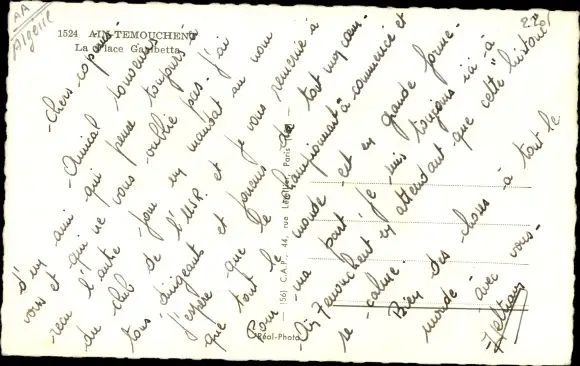 AA
Algérie
1524 AIN-TEMOUCHENT
La Place Gambetta
220f
- Chers copains
- Amical souvenirs
d'un ami qui pense toujours à
vous et qui ne vous oublie pas - J'ai
reçu l'autre jour un mandat au nom
du club de l'USR. et je vous remercie à
tous dirigeants et joueurs de tout mon cœur.
J'espère que le championnat a commencé et
que tout le monde est en grande forme -
Pour ma part je suis toujours ici à
Aïn Temouchent en attendant que cette "histoire"
se calme.
Bien des choses à tout le
monde avec vous -
(56) C.A.P., 44, rue Paris
Réal-Photo